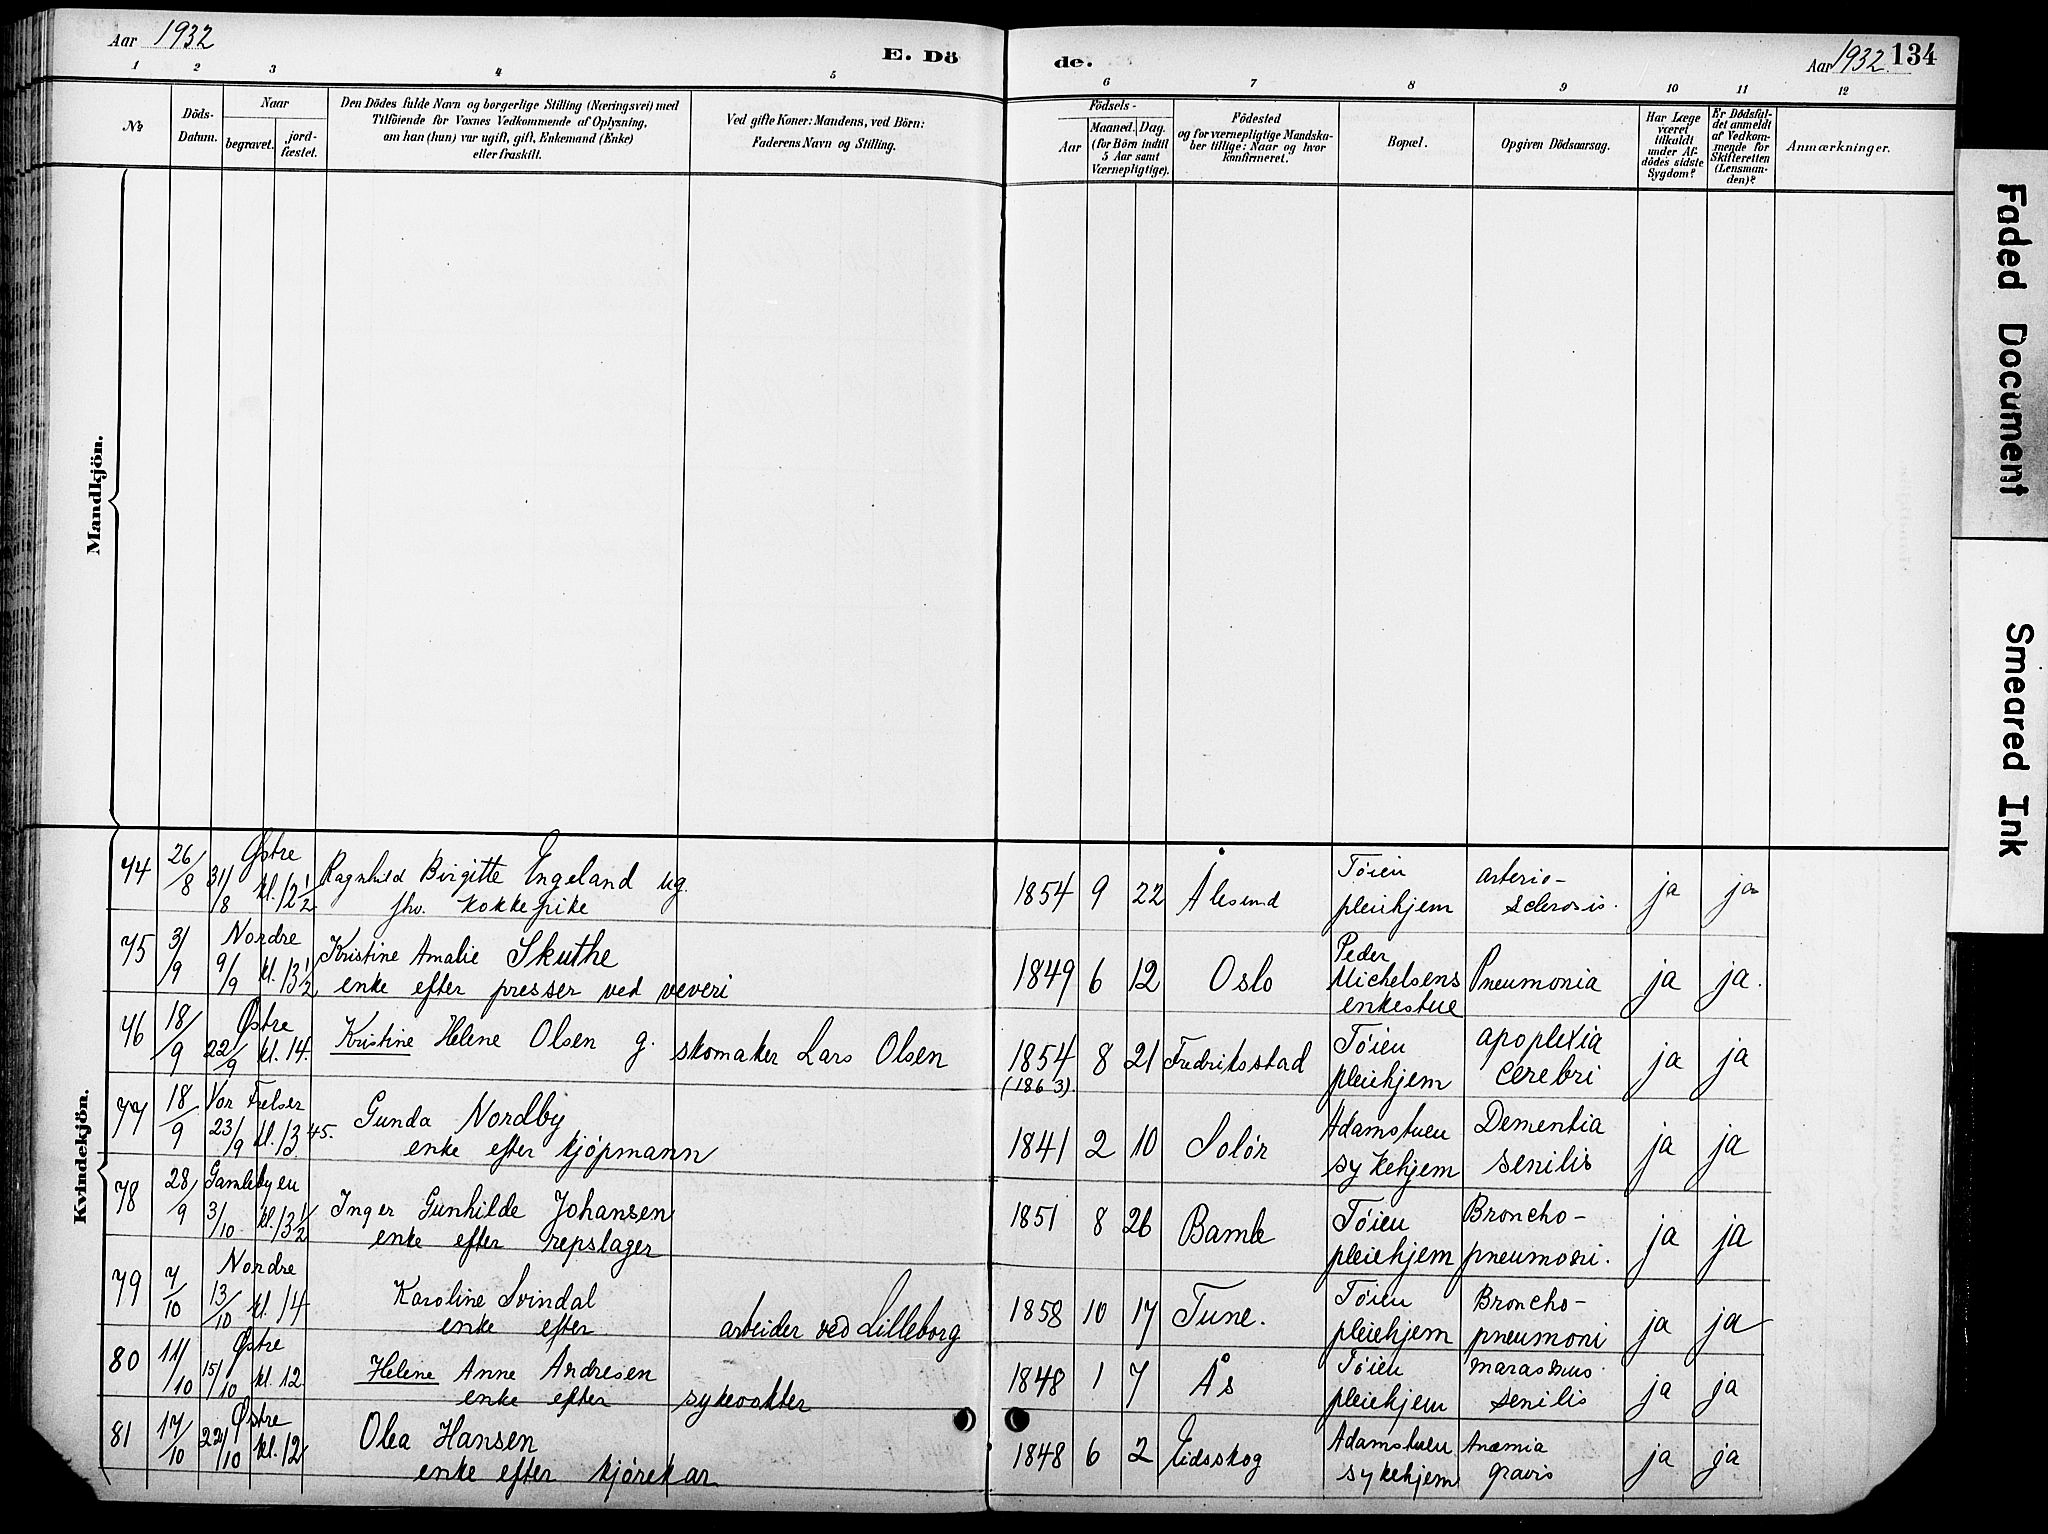 Aar 1932
E. Dö de.
Aar 1932. 134
1 2 3 4 5 6 7 8 9 10 11 12
№
Döds-Datum.
Naar
begravet.
jord-fæstet.
Den Dödes fulde Navn og borgerlige Stilling (Næringsvei) med
Tilföiende for Voxnes Vedkommende af Oplysning,
om han (hun) var ugift, gift, Enkemand (Enke)
eller fraskilt.
Ved gifte Koner: Mandens, ved Börn:
Faderens Navn og Stilling.
Födsels-
Aar
Maaned. Dag.
(for Börn indtil
5 Aar samt
Værnepligtige).
Födested
og for værnepligtige Mandska-
ber tillige: Naar og hvor
konfirmeret.
Bopæl.
Opgiven Dödsaarsag.
Har Læge
været
tilkaldt
under Af-
dödes sidste
Sygdom?
Er Dödsfal-
det anmeldt
af Vedkom-
mende for
Skifteretten
(Lensman-
den)?
Anmærkninger.
Mandkjön.
Kvindekjön.
74 26/8 Østre 31/8 kl. 12 1/2 Ragnhild Birgitte Engeland ug.
fhv. kokkepike
1854 9 22 Ålesund Tøien pleiehjem arterio-sclerosis. ja ja
75 3/9 Nordre 9/9 kl. 13 1/2 Kristine Amalie Skuthe
enke efter presser ved veveri
1849 6 12 Oslo Peder Michelsens enkestue Pneumonia ja ja.
76 18/9 Østre 22/9 kl. 14. Kristine Helene Olsen g. skomaker Lars Olsen
1854 (1863) 8 21 Fredriksstad Tøien pleiehjem apoplexia cerebri ja ja
77 18/9 Vor Frelser 23/9 kl. 13 45. Gunda Nordby
enke efter kjøpmann
1841 2 10 Solør Adamstuen sykehjem Dementia senilis ja ja
78 28/9 Gamlebyen 3/10 kl. 13 1/2 Inger Gunhilde Johansen
enke efter repslager
1851 8 26 Bamle Tøien pleiehjem Broncho-pneumoni. ja ja
79 7/10 Nordre 13/10 kl. 14 Karoline Svindal
enke efter arbeider ved Lilleborg
1858 10 17 Tune. Tøien pleiehjem Broncho-pneumoni ja ja
80 11/10 Østre 15/10 kl. 12 Helene Anne Andresen
enke efter sykevokter
1848 1 7 Ås Tøien pleiehjem marasmus senilis ja ja
81 17/10 Østre 22/10 kl. 12 Olea Hansen
enke efter kjørekar
1848 6 2 Eidsskog Adamstuen sykehjem Anæmia gravis ja ja
Faded Document
Smeared Ink